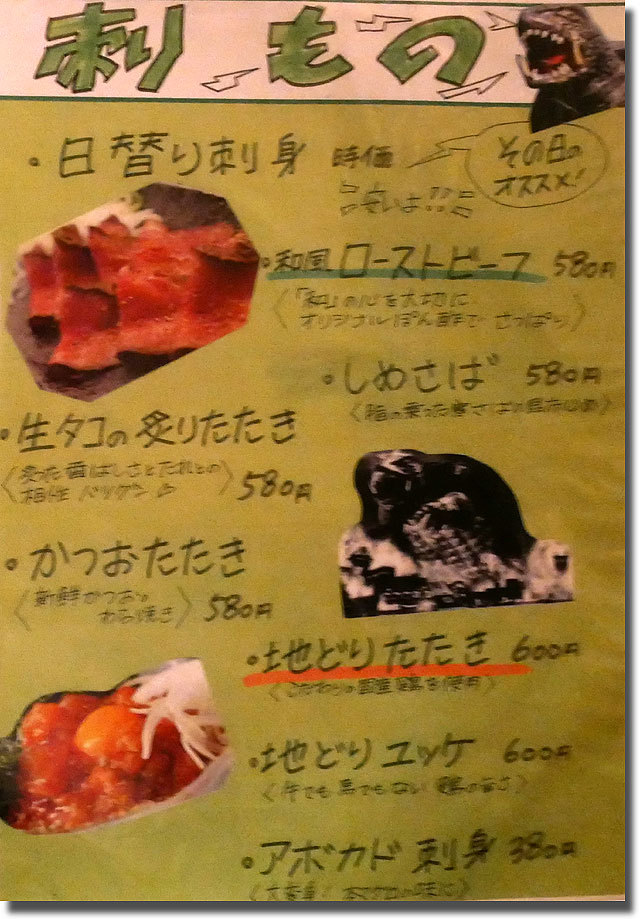 刺りもの
・日替り刺身 時価
その日の
オススメ!
安いよ!!
・和風ローストビーフ 580円
〈「和」の心を大切に
オリジナルぽん酢で さっぱり〉
・しめさば 580円
〈脂の乗った寒さばの
・生タコの炙りたたき
〈炙った香ばしさとたれとの
相性 バツグン〉 580円
・かつおたたき
〈新鮮かつお
わら焼き〉 580円
・地どりたたき 600円
〈こだわりの国産鶏を使用〉
・地どりユッケ 600円
〈牛でも馬でもない 鶏の旨さ〉
・アボカド刺身 380円
〈大変身!